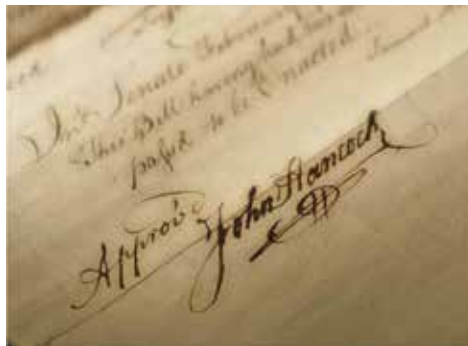 In Senate February
This Bill having had
passed to be Enacted
Approv'd
John Hancock